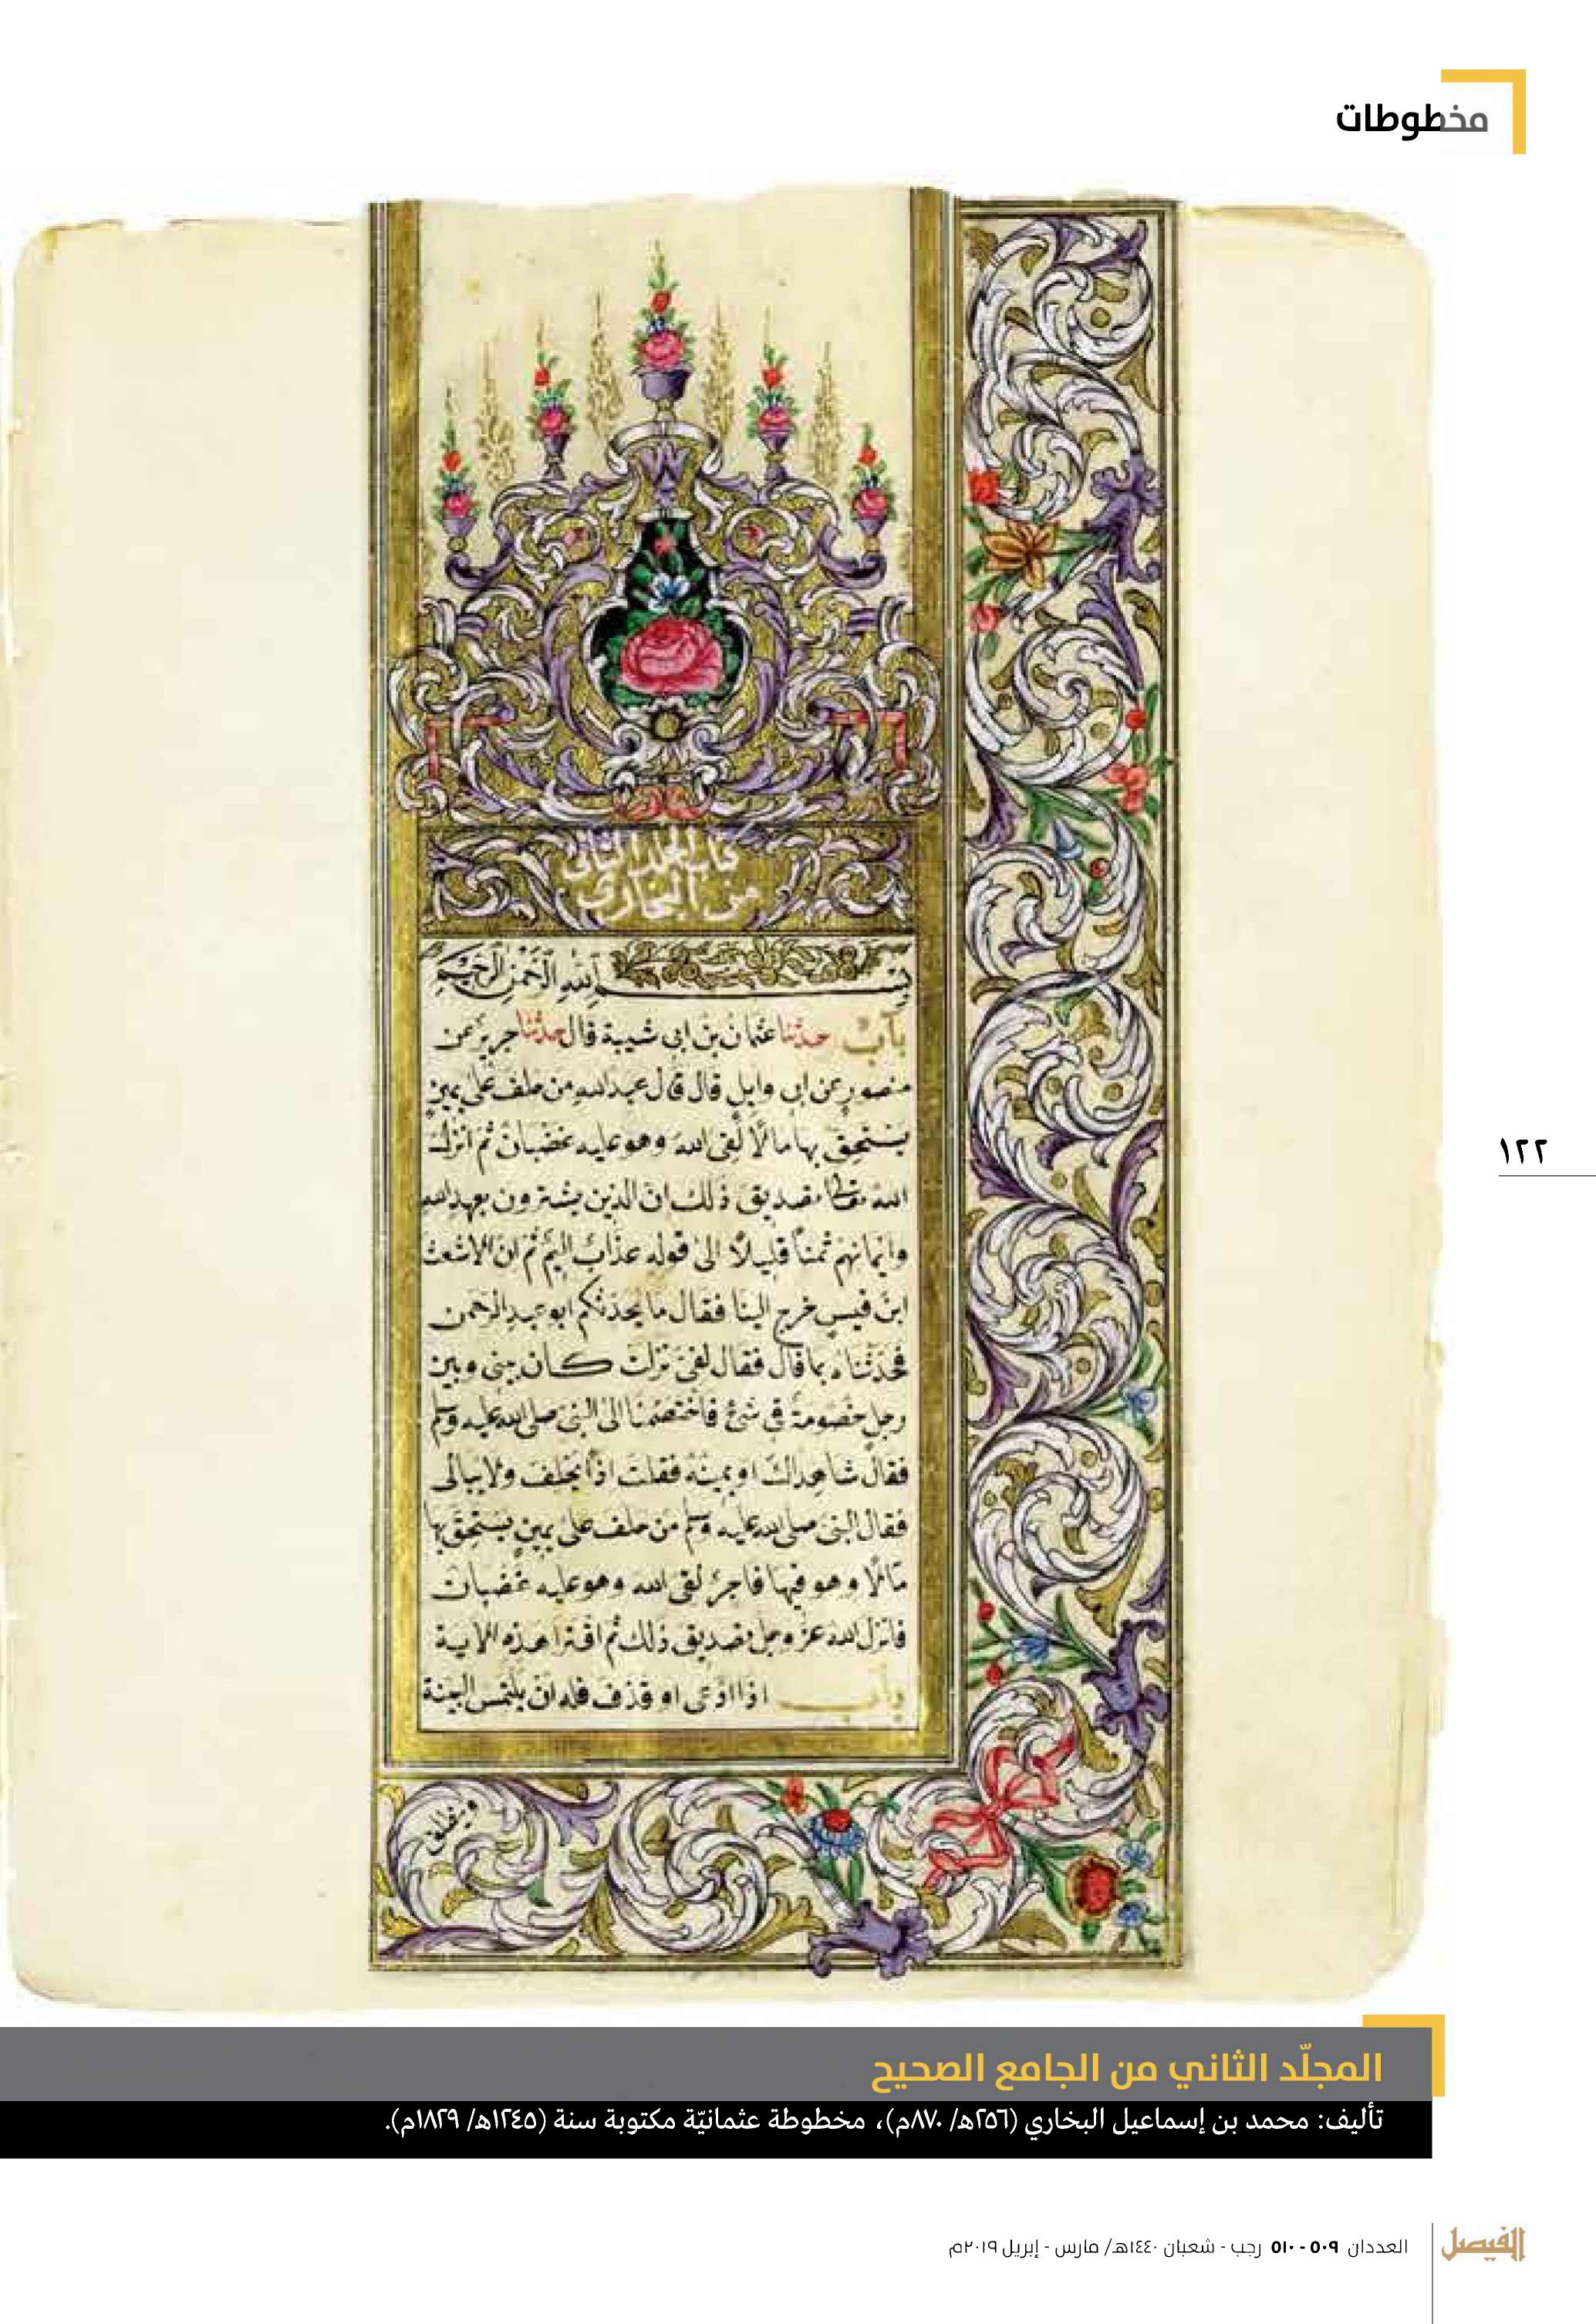 مخطوطات
كتاب المجلد الثاني
من البخاري
بسم الله الرحمن الرحيم
باب حدثنا عثمان بن ابى شيبة قال حدثنا جرير عن
منصور عن ابى وايل قال قال عبد الله من حلف على يمين
يستحق بها مالا لقى الله وهو عليه غضبان ثم انزل
الله تعالى تصديق ذلك ان الذين يشترون بعهد الله
وايمانهم ثمنا قليلا الى قوله عذاب اليم ثم ان الاشعث
ابن قيس خرج الينا فقال ما يحدثكم ابو عبد الرحمن
فحدثناه بما قال فقال لفى نزلت كان بينى وبين
رجل خصومة فى شئ فاختصمنا الى النبى صلى الله عليه وسلم
فقال شاهداك او يمينه فقلت اذا يحلف ولا يبالى
فقال النبى صلى الله عليه وسلم من حلف على يمين يستحق بها
مالا وهو فيها فاجر لقى الله وهو عليه غضبان
فانزل الله عز وجل تصديق ذلك ثم اقترا هذه الاية
باب اذا ادعى او قذف فله ان يلتمس البينة
وينطلق
١٢٢
المجلّد الثاني من الجامع الصحيح
تأليف: محمد بن إسماعيل البخاري (٢٥٦هـ/ ٨٧٠م)، مخطوطة عثمانيّة مكتوبة سنة (١٢٤٥هـ/ ١٨٢٩م).
العددان ٥٠٩ - ٥١٠ رجب - شعبان ١٤٤٠هـ/ مارس - إبريل ٢٠١٩م
الفيصل